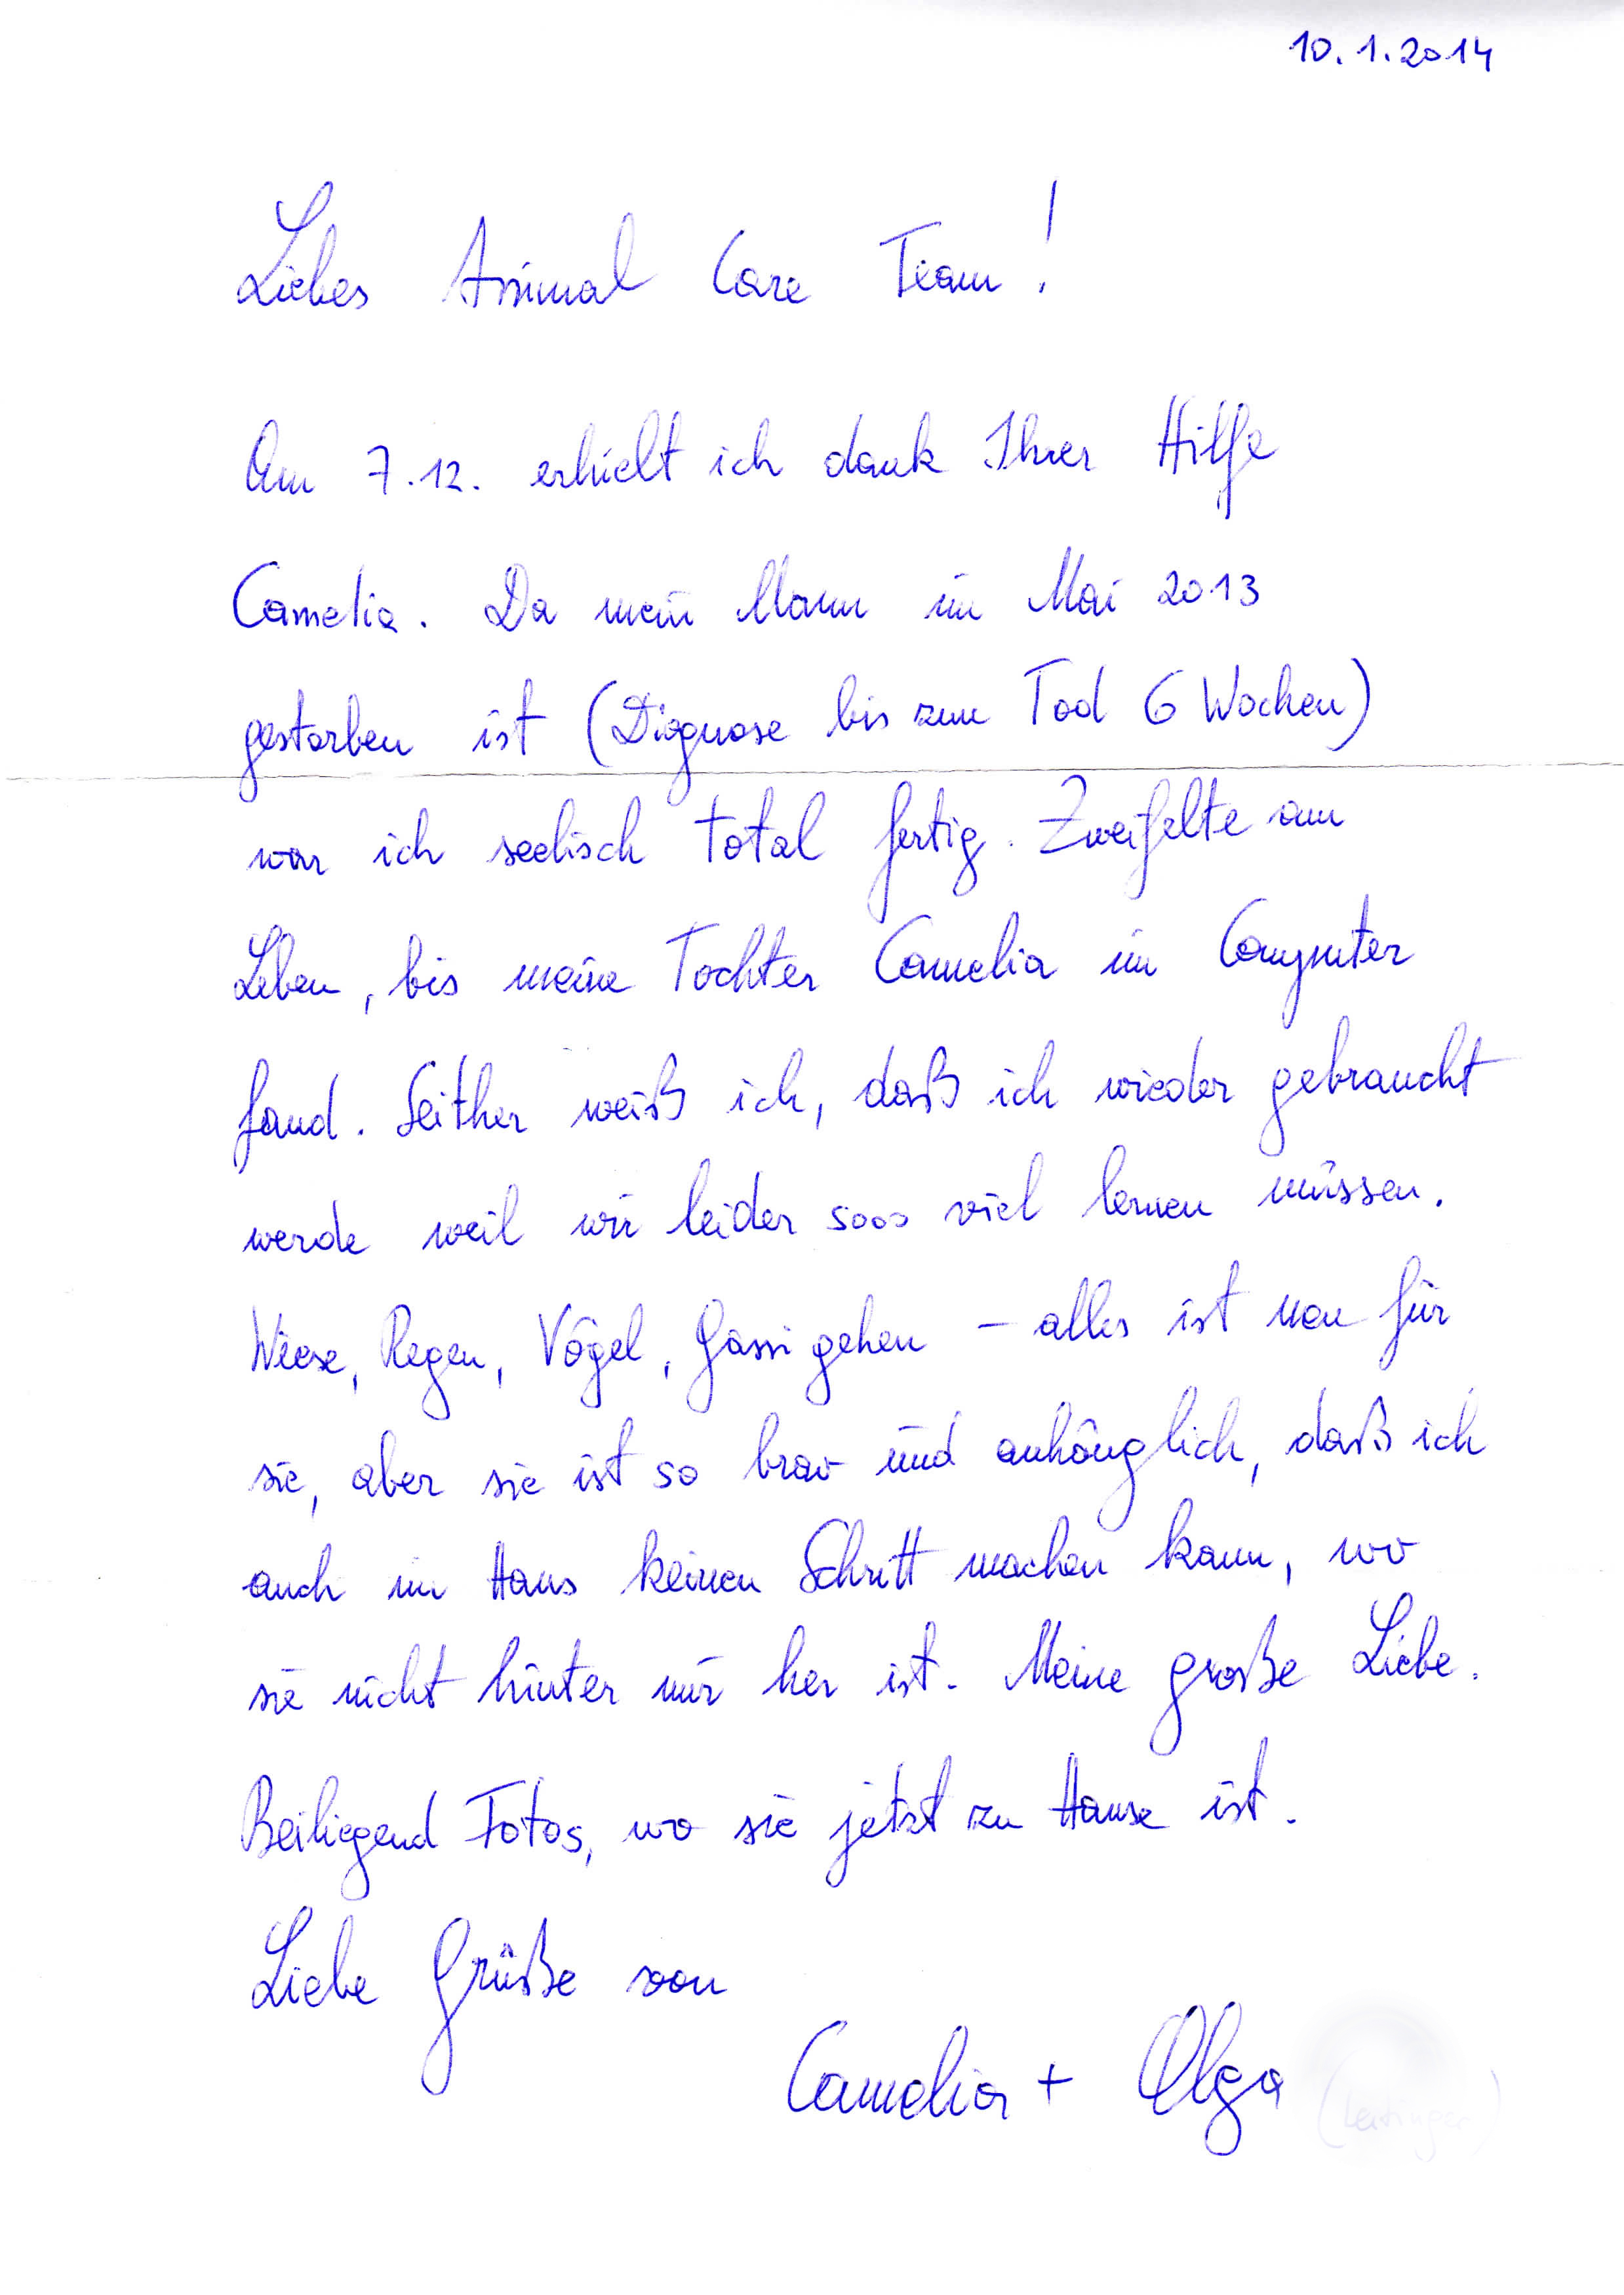 10.1.2014
Liebes Animal Care Team!
Am 7.12. erhielt ich dank Ihrer Hilfe
Camelia. Da mein Mann im Mai 2013
gestorben ist (Diagnose bis zum Tod 6 Wochen)
war ich seelisch total fertig. Zweifelte am
Leben, bis meine Tochter Camelia im Computer
fand. Seither weiß ich, daß ich wieder gebraucht
werde weil wir leider sooo viel lernen müssen.
Wiese, Regen, Vögel, Gassi gehen – alles ist neu für
sie, aber sie ist so brav und anhänglich, daß ich
auch im Haus keinen Schritt machen kann, wo
sie nicht hinter mir her ist. Meine große Liebe.
Beiliegend Fotos, wo sie jetzt zu Hause ist.
Liebe Grüße von
Camelia + Olga